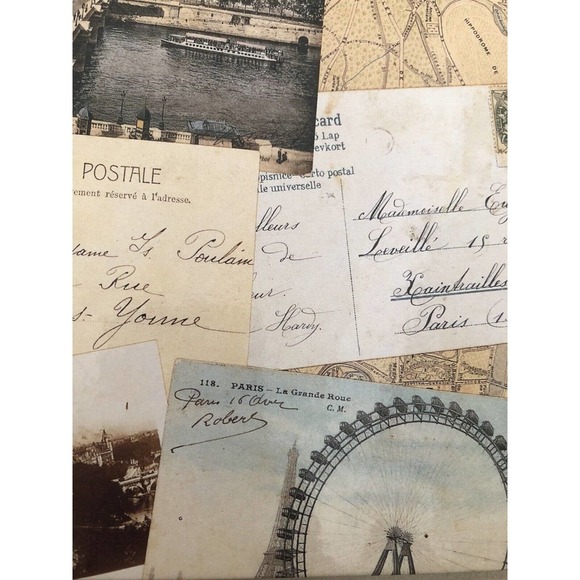 HIPPODROME DE
card
Lap
evkort
pisnice Carto postal
ile universelle
POSTALE
ement réservé à l'adresse.
ame Is Poulain
Rue
s- Yonne
lleurs
de
eur.
Hardy.
Mademoiselle Eug
Leveillé 15 r
Xaintrailles
Paris 1
118. PARIS - La Grande Roue
C. M.
Paris 16 Avr
Robert